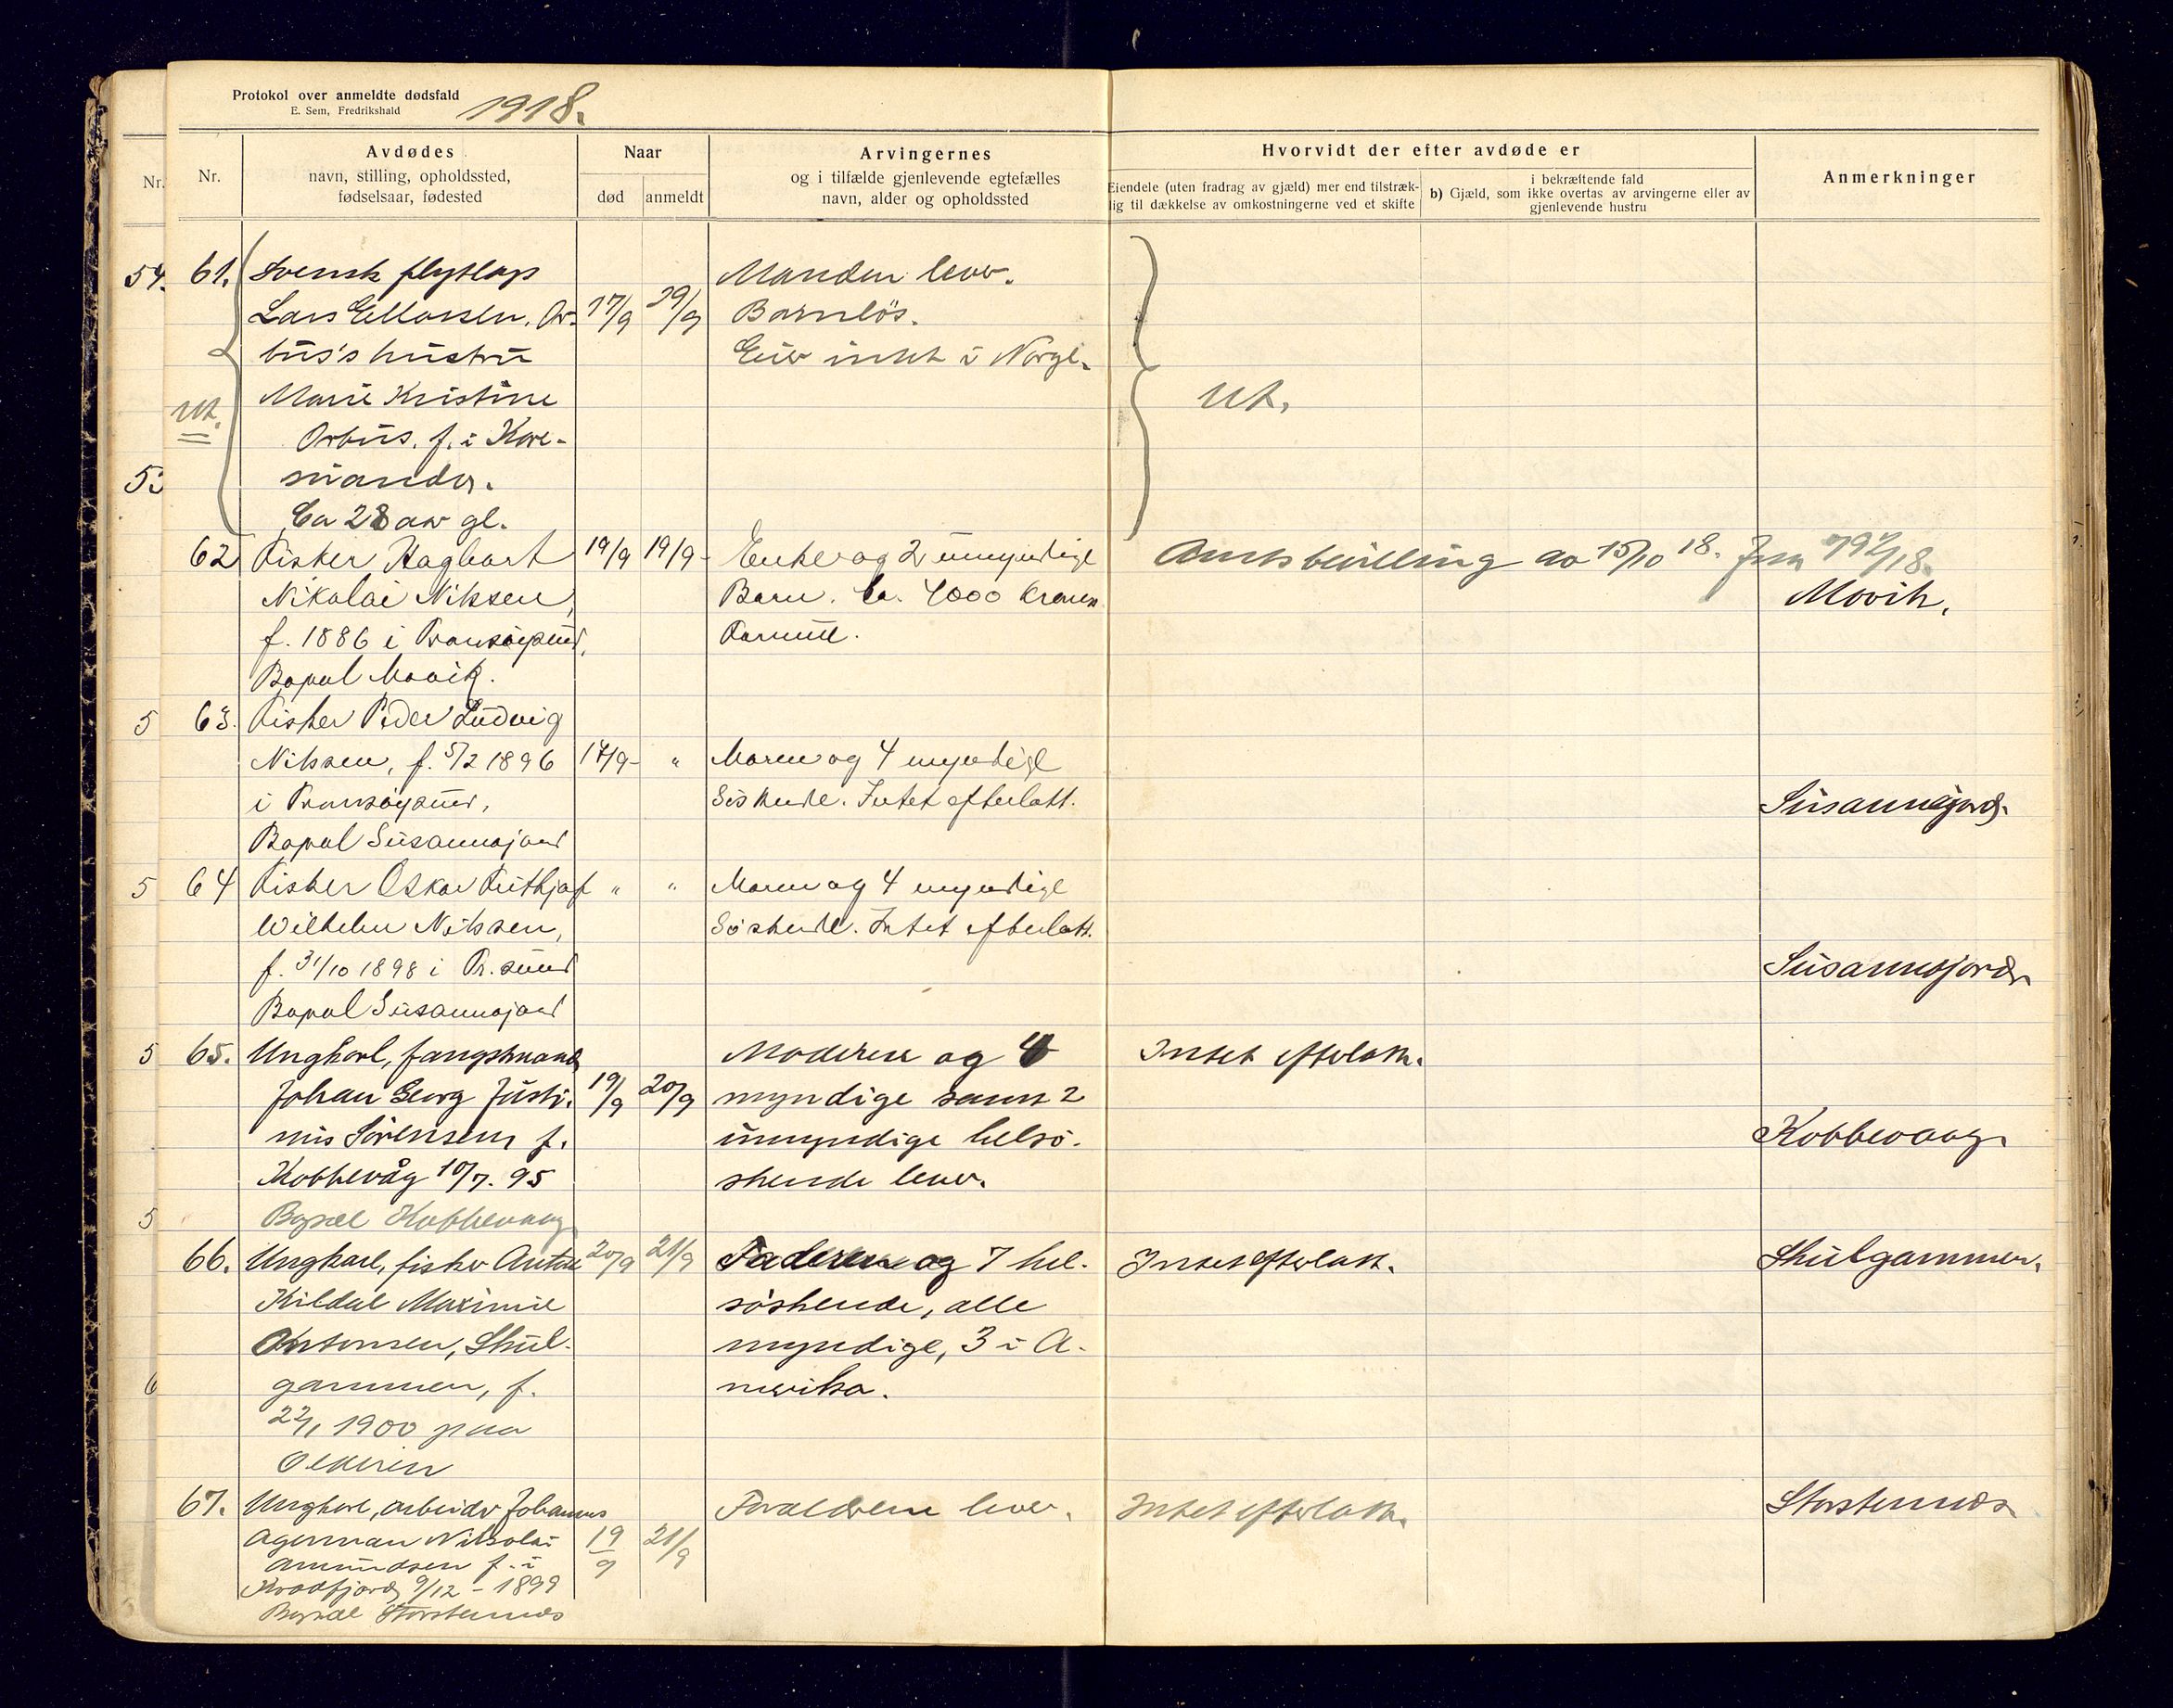 Protokol over anmeldte dødsfald
E. Sem, Fredrikshald
1918.
Nr.
Nr.
Avdødes
navn, stilling, opholdssted,
fødselsaar, fødested
Naar
død
anmeldt
Arvingernes
og i tilfælde gjenlevende egtefælles
navn, alder og opholdssted
Hvorvidt der efter avdøde er
Eiendele (uten fradrag av gjæld) mer end tilstræk-
lig til dækkelse av omkostningerne ved et skifte
i bekræftende fald
b) Gjæld, som ikke overtas av arvingerne eller av
gjenlevende hustru
Anmerkninger
54. 61. Svensk flytlap
Lars Ellassen, Or-
bus's hustru
Marie Kristine
Orbus, f. i Kare-
suando.
Ca 28 aar gl.
Ut.
17/9
Manden lever.
Barnløs.
Eier intet i Norge.
Ut.
53
62 Fisker Hagbart
Nikolai Nilssen,
f. 1886 i Transøysund,
Bopæl Movik.
19/9 19/9
Enke og 2 umyndige
Barn. Ca. 4000 kroner
Formue.
Amtsbevilling av 15/10 18.
Movik.
5 63. Fisker Peder Ludvig
Nilssen, f. 5/2 1896
i Transøysund,
Bopæl Susannajord
17/9 "
Moren og 4 myndige
Søskende. Intet efterlatt.
Susannajord.
5 64 Fisker Oskar Frithjof
Wilhelm Nilssen,
f. 31/10 1898 i Tr.sund
Bopæl Susannajord
" "
Moren og 4 myndige
Søskende. Intet efterlatt.
Susannajord.
5 65. Ungkarl, fangstmand
Johan Georg Justi-
nus Sørensen f.
Kobbevåg 10/7. 95
Bopæl Kobbevaag
19/9 20/9
Moderen og 4
myndige samt 2
umyndige helsø-
skende lever.
Intet efterlatt.
Kobbevaag.
5
66. Ungkarl, fisker
Kildal
Antonsen, Skul-
gammen, f.
22/1 1900 paa
20/9 21/9
Faderen og 7 hel-
søskende, alle
myndige, 3 i A-
merika.
Intet efterlatt.
Skulgammen.
6
67. Ungkarl, arbeider Johannes
Agerman Nikolai
Amundsen f. i
9/12 - 1899
Bopæl Storstennes
19/9 21/9
Forældrene lever.
Intet efterlatt.
Storstennes